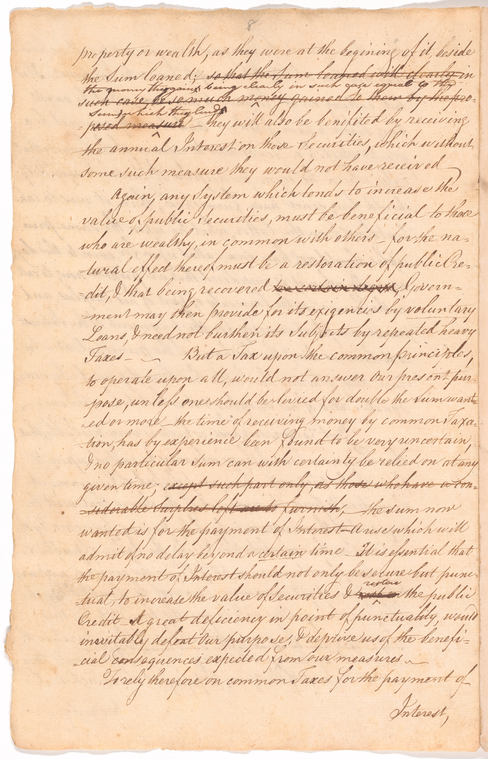 8
property or wealth, as they were at the begining of it, beside
the Sum loaned; so that the Sum loaned will clearly in
the money they gain being clearly in such case equal to the
such case, be so much money gained to them by the pro-
Sum which they lend
-posed measure - they will also be benefited by receiving
the annual Interest on those Securities, which without
some such measure they would not have received
Again, any System which tends to increase the
value of public securities, must be beneficial to those
who are wealthy, in common with others - for the na-
tural effect thereof must be a restoration of public Cre-
-dit, & that being recovered Govern-
-ment may then provide for its exigencies by voluntary
Loans, & need not burthen its Subjects by repeated heavy
Taxes - But a Tax upon the common principles,
to operate upon all, would not answer our present pur-
pose, unless one should be levied for double the Sum want-
-ed or more - the time of receiving money by common Taxa-
-tion, has by experience been found to be very uncertain,
& no particular Sum can with certainty be relied on at any
given time; except such part only, as those who have a con-
-siderable Surplus furnish, - the Sum now
wanted is for the payment of Interest - A use which will
admit of no delay beyond a certain time. It is essential that
the payment of Interest should not only be secure but punc-
restore
-tual, to increase the value of Securities & the public
Credit - A great deficiency in point of punctuality, would
inevitably defeat our purpose, & deprive us of the benefi-
-cial consequences expected from our measures -
To rely therefore on common Taxes for the payment of
Interest,